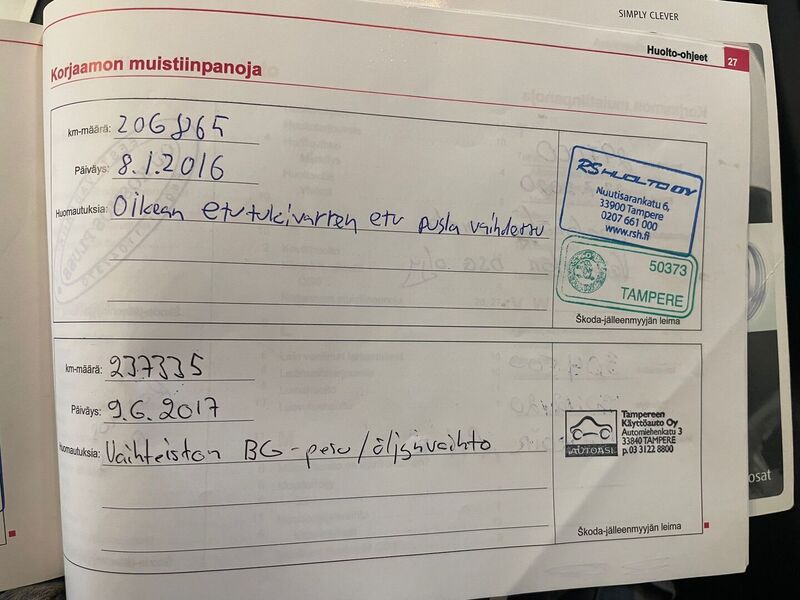 SIMPLY CLEVER
Huolto-ohjeet 27
Korjaamon muistiinpanoja
km-määrä: 206865
Päiväys: 8.1.2016
Huomautuksia: Oikean etutukivarren etu pusla vaihdettu
RS HUOLTO OY
Nuutisarankatu 6,
33900 Tampere
0207 661 000
www.rsh.fi
50373
TAMPERE
Škoda-jälleenmyyjän leima
km-määrä: 237335
Päiväys: 9.6.2017
Huomautuksia: Vaihteiston BG-pesu/öljynvaihto
AUTOASI
Tampereen
Käyttöauto Oy
Automiehenkatu 3
33840 TAMPERE
p. 03 3122 8800
Škoda-jälleenmyyjän leima
osat